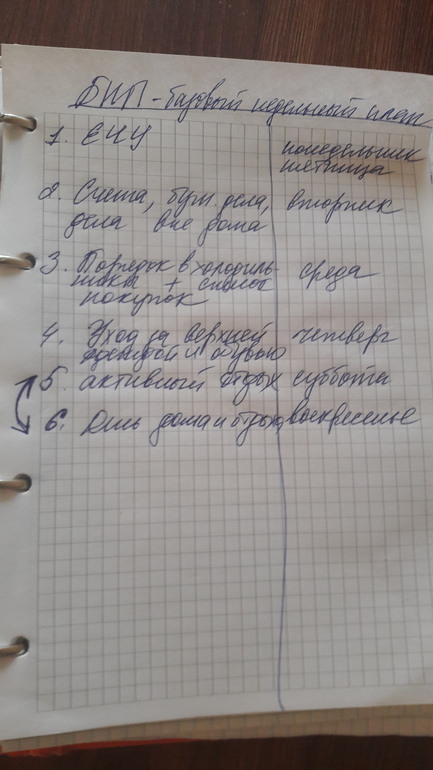 БНП - базовый недельный план
1. ЕНУ понедельник
пятница
2. Счета, бум. дела, вторник
дела вне дома
3. Порядок в холодиль- среда
нике + список
покупок
4. Уход за верхней четверг
одеждой и обувью
5. активный отдых суббота
6. День дома и отдыха воскресенье